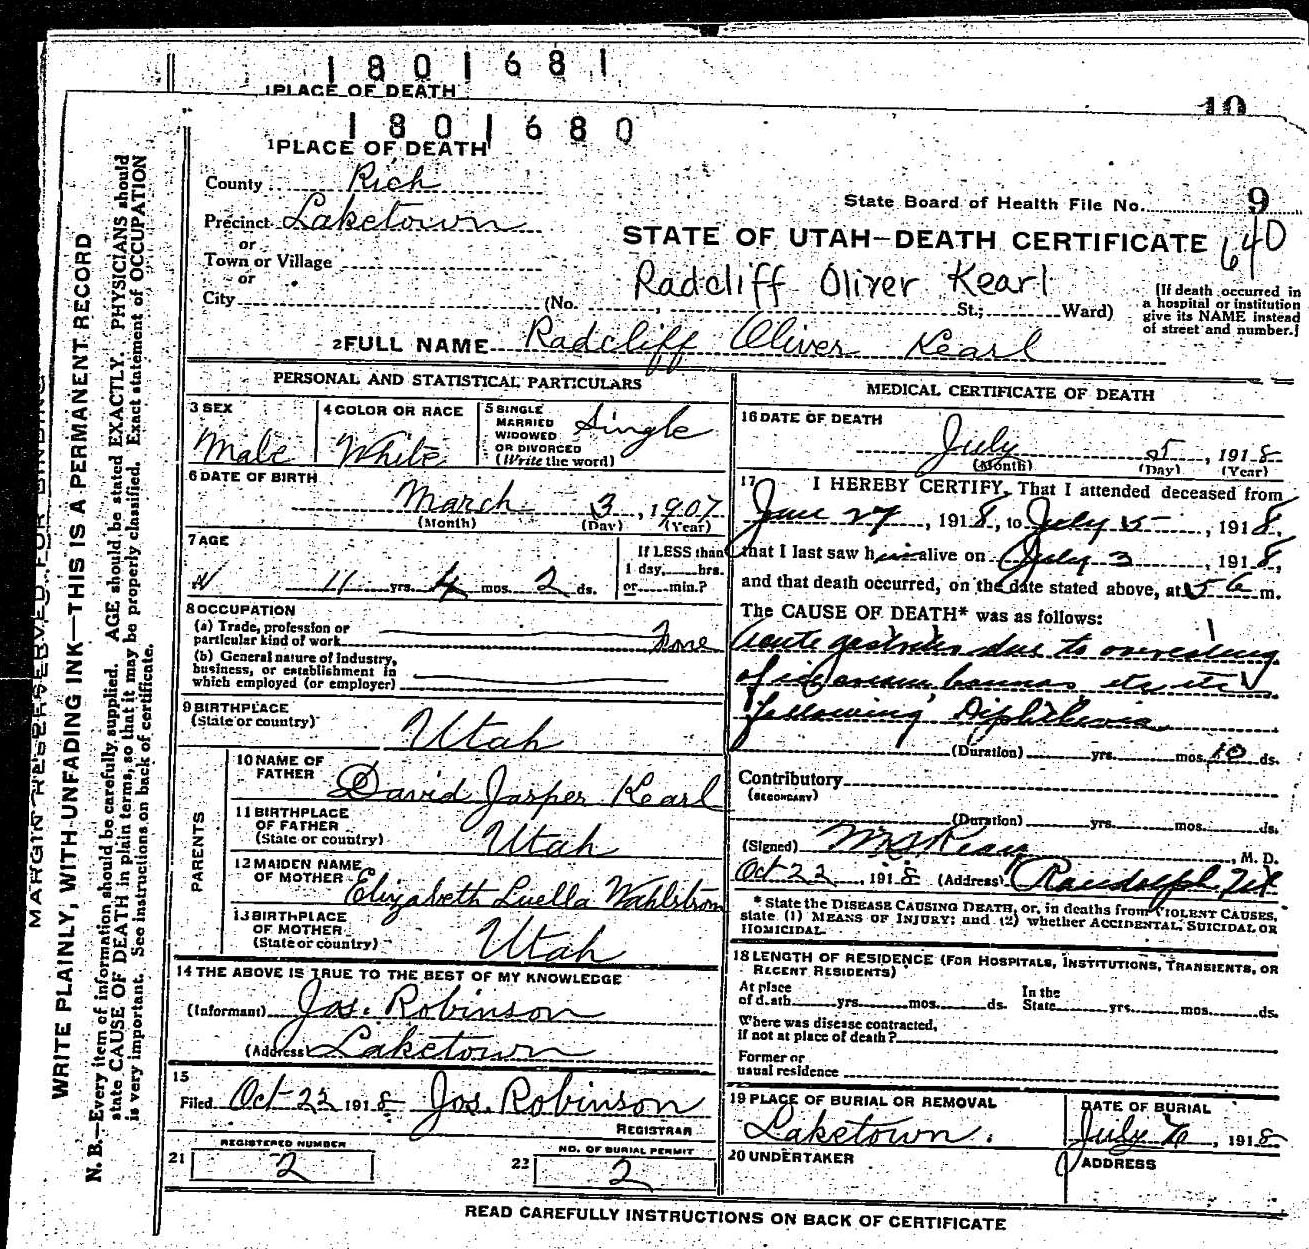 1801681
1 PLACE OF DEATH
10
1801680
1 PLACE OF DEATH
County Rich
State Board of Health File No. 9
Precinct Laketown
or
STATE OF UTAH—DEATH CERTIFICATE 640
Town or Village
or
Radcliff Oliver Kearl
City (No. St.; Ward)
[If death occurred in
a hospital or institution
give its NAME instead
of street and number.]
2 FULL NAME Radcliff Oliver Kearl
PERSONAL AND STATISTICAL PARTICULARS
3 SEX
Male
4 COLOR OR RACE
White
5 SINGLE
MARRIED
WIDOWED
OR DIVORCED
(Write the word)
Single
6 DATE OF BIRTH
March 3, 1907
(Month) (Day) (Year)
7 AGE
11 yrs. 4 mos. 2 ds.
If LESS than
1 day, hrs.
or min.?
8 OCCUPATION
(a) Trade, profession or
particular kind of work None
(b) General nature of industry,
business, or establishment in
which employed (or employer)
9 BIRTHPLACE
(State or country)
Utah
PARENTS
10 NAME OF
FATHER David Jasper Kearl
11 BIRTHPLACE
OF FATHER
(State or country) Utah
12 MAIDEN NAME
OF MOTHER Elizabeth Luella Wahlstrom
13 BIRTHPLACE
OF MOTHER
(State or country) Utah
14 THE ABOVE IS TRUE TO THE BEST OF MY KNOWLEDGE
(Informant) Jos. Robinson
(Address) Laketown
15
Filed Oct 23 1918 Jos. Robinson
REGISTRAR
REGISTERED NUMBER
21 2
NO. OF BURIAL PERMIT
22 2
MEDICAL CERTIFICATE OF DEATH
16 DATE OF DEATH
July 5, 1918
(Month) (Day) (Year)
17 I HEREBY CERTIFY, That I attended deceased from
June 27, 1918, to July 5, 1918,
that I last saw him alive on July 3, 1918,
and that death occurred, on the date stated above, at 5 m.
The CAUSE OF DEATH* was as follows:
Acute gastritis due to overeating
of ice cream, bananas, etc etc
following Diphtheria
(Duration) yrs. mos. 10 ds.
Contributory
(SECONDARY)
(Duration) yrs. mos. ds.
(Signed) , M. D.
Oct 22, 1918 (Address) Randolph, Ut
* State the DISEASE CAUSING DEATH, or, in deaths from VIOLENT CAUSES,
state (1) MEANS OF INJURY; and (2) whether ACCIDENTAL, SUICIDAL OR
HOMICIDAL.
18 LENGTH OF RESIDENCE (FOR HOSPITALS, INSTITUTIONS, TRANSIENTS, OR
RECENT RESIDENTS)
At place
of death yrs. mos. ds.
In the
State yrs. mos. ds.
Where was disease contracted,
if not at place of death?
Former or
usual residence
19 PLACE OF BURIAL OR REMOVAL
Laketown.
DATE OF BURIAL
July 6, 1918
20 UNDERTAKER
ADDRESS
READ CAREFULLY INSTRUCTIONS ON BACK OF CERTIFICATE
MARGIN RESERVED FOR BINDING
WRITE PLAINLY, WITH UNFADING INK—THIS IS A PERMANENT RECORD
N. B.—Every item of information should be carefully supplied. AGE should be stated EXACTLY. PHYSICIANS should
state CAUSE OF DEATH in plain terms, so that it may be properly classified. Exact statement of OCCUPATION
is very important. See instructions on back of certificate.